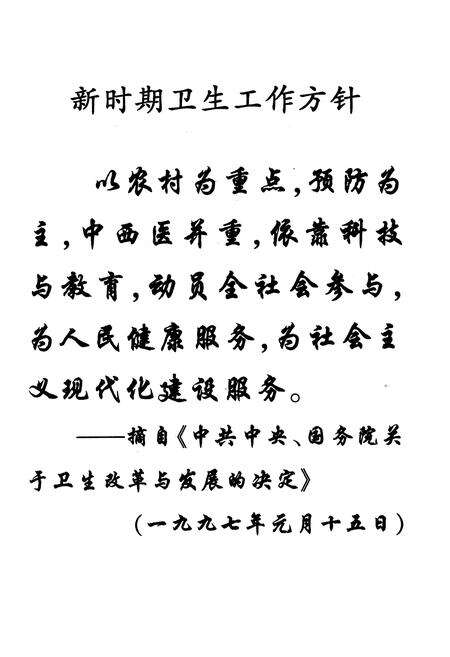 新时期卫生工作方针
以农村为重点,预防为
主,中西医并重,依靠科技
与教育,动员全社会参与,
为人民健康服务,为社会主
义现代化建设服务。
——摘自《中共中央、国务院关
于卫生改革与发展的决定》
(一九九七年元月十五日)